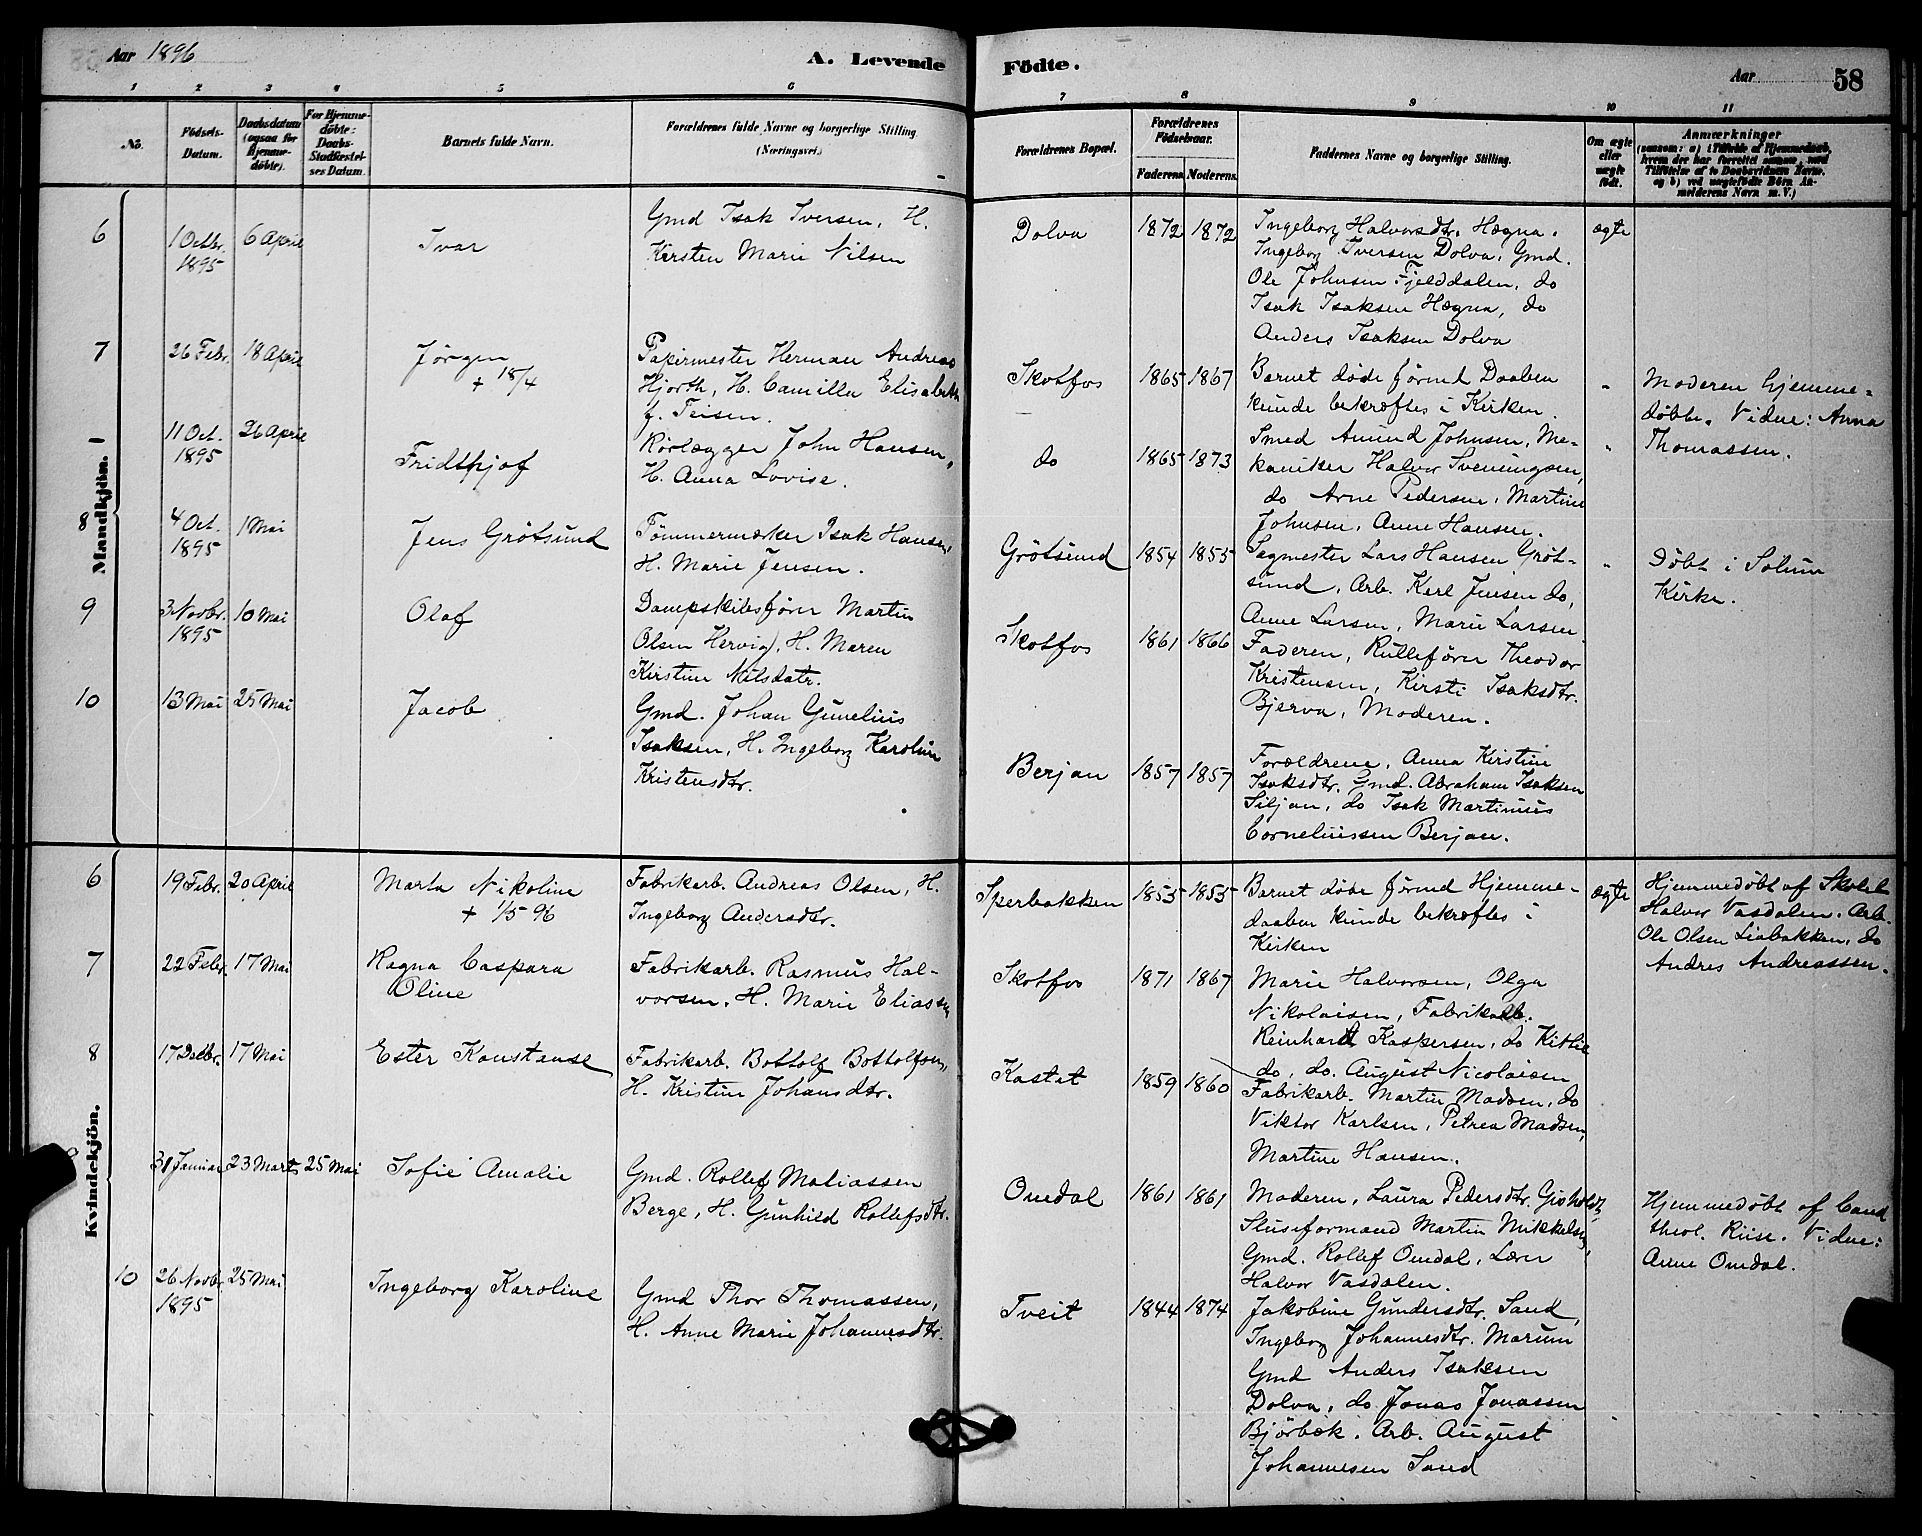 Aar 1896
A. Levende
1 2 3 4 5 6
No.
Födsels-
Datum.
Daabsdatum
(ogsaa for
Hjemme-
døbte).
For Hjemme-
døbte:
Daabs-
Stadfæstel-
ses Datum.
Barnets fulde Navn.
Forældrenes fulde Navne og borgerlige Stilling
(Næringsvei.)
Mandkjön.
6
1 Octbr.
1895
6 April
Ivar
Gmd Isak Iversen, H.
Kirsten Marie Nilsen
7
26 Febr.
18 April
Jørgen
+ 18/4
Papirmester Herman Andreas
Hjorth, H. Camilla Elisabeth
f. Teisen.
11 Oct.
1895
26 April
Fridthjof
Rørlægger John Hansen,
H. Anna Lovise.
8
4 Oct.
1895
1 Mai
Jens Grötsund
Tømmermærker Isak Hansen,
H. Marie Jensen.
9
3 Novbr.
1895
10 Mai
Olaf
Dampskibsfører Martin
Olsen Hervig, H. Maren
Kirstine Nilsdatr.
10
13 Mai
25 Mai
Jacob
Gmd. Johan Gunelius
Isaksen, H. Ingeborg Karoline
Kristensdtr.
Kvindekjön.
6
19 Febr.
20 April
Marta Nikoline
+ 1/5 96
Fabrikarb. Andreas Olsen, H.
Ingeborg Andersdtr.
7
22 Febr.
17 Mai
Ragna Caspara
Oline
Fabrikarb. Rasmus Hal-
vorsen, H. Marie Eliassen
8
17 Decbr.
17 Mai
Ester Konstanse
Fabrikarb. Bottolf Bottolfsen,
H. Kristine Johansdtr.
9
31 Januar
23 Marts
25 Mai
Sofie Amalie
Gmd. Rollef Matiassen
Berge, H. Gunhild Rollefsdtr.
10
26 Novb.
1895
25 Mai
Ingeborg Karoline
Gmd Thor Thomassen,
H. Anne Marie Johannesdtr.
Födte.
Aar
58
7 8 9 10 11
Forældrenes Bopæl.
Forældrenes
Födselsaar.
Faderens.
Moderens.
Faddernes Navne og borgerlige Stilling.
Om ægte
eller
uægte
födt.
Anmærkninger
(saasom: a) i Tilfælde af Hjemmedaab,
hvem der har forrettet samme, med
Tilföielse af to Daabsvidners Navne,
og b) ved uægtefödte Börn An-
melderens Navn m. V.)
Dolva
1872
1872
Ingeborg Halvorsdtr. Hægna.
Ingeborg Iversen Dolva, Gmd.
Ole Johnsen Fjelddalen, do
Isak Isaksen Hægna, do
Anders Isaksen Dolva
ægte
Skotfos
1865
1867
Barnet døde førend Daaben
kunde bekræftes i Kirken.
"
Moderen hjemme-
døbte. Vidne: Anna
Thomassen.
do
1865
1873
Smed Amund Johnsen, Me-
kaniker Halvor Sveningsen,
do Arne Pedersen, Martine
Johnsen, Anne Hansen.
"
Grötsund
1854
1855
Sagmester Lars Hansen Grøt-
sund, Arb. Karl Jensen do,
Anne Larsen, Marie Larsen.
"
Døbt i Solum
Kirke.
Skotfos
1861
1866
Faderen, Rullefører Theodor
Kristensen, Kirsti Isaksdtr.
Bjerva, Moderen.
Berjan
1857
1857
Forældrene, Anna Kirstine
Isaksdtr. Gmd. Abraham Isaksen
Siljan, do Isak Martinius
Corneliussen Berjan.
Sperbakken
1853
1855
Barnet døde førend Hjemme-
daaben kunde bekræftes i
Kirken
ægte
Hjemmedøbt af Skolel.
Halvor Vasdalen. Arb.
Ole Olsen Liabakken, do
Andres Andreassen.
Skotfos
1871
1867
Marie Halvorsen, Olga
Nikolaisen, Fabrikarb.
Reinhardt Kaspersen, do Kittil
do, do. August Nicolaisen
Kastet
1859
1860
Fabrikarb. Martin Madsen, do
Viktor Karlsen, Petrea Madsen,
Martine Hansen.
Omdal
1861
1861
Moderen, Laura Pedersdtr. Gisholdt,
Sluseformand Martin Mikkelsen,
Gmd. Rollef Omdal, Lærer
Halvor Vasdalen.
Hjemmedøbt af Cand
theol. Riise. Vidne:
Anne Omdal.
Tveit
1844
1874
Jakobine Gundersdtr. Sand,
Ingeborg Johannesdtr. Marum
Gmd Anders Isaksen
Dolva, do Jonas Jonassen
Bjørbæk. Arb. August
Johannesen Sand